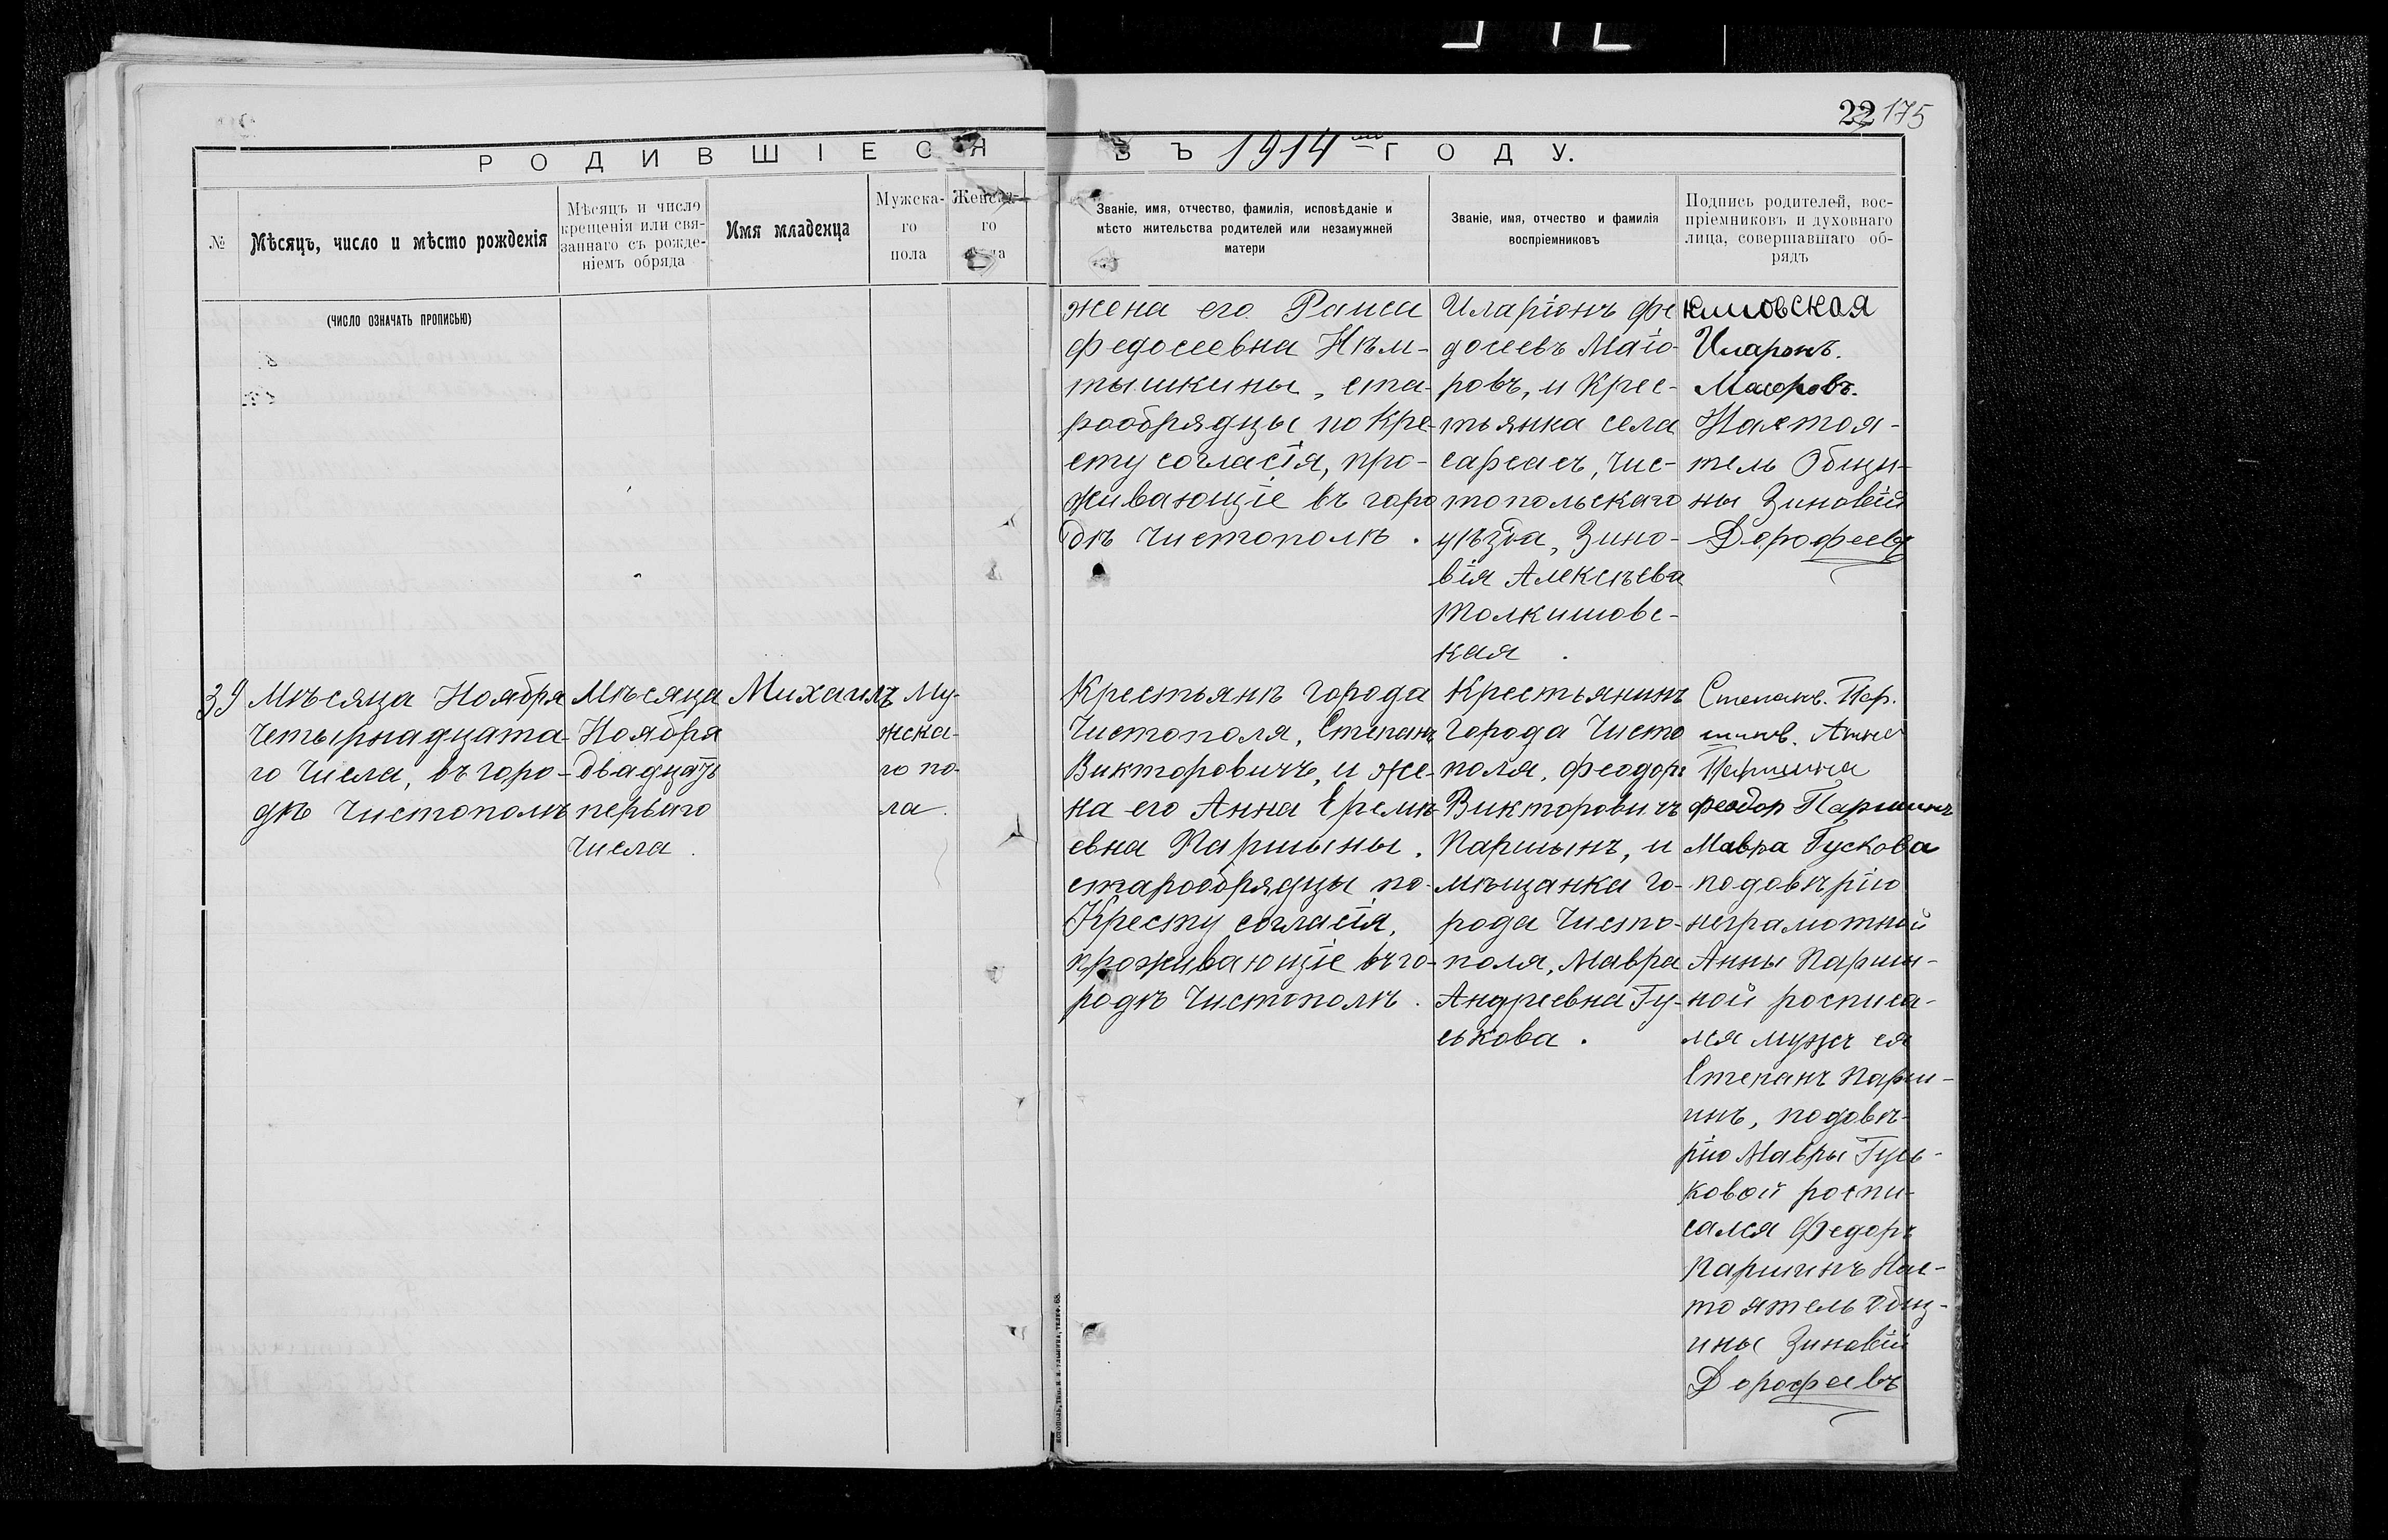 22 175
РОДИВШІЕСЯ ВЪ 1914 ГОДУ.
№
Мѣсяцъ, число и мѣсто рожденія
Мѣсяцъ и число
крещенія или свя-
заннаго съ рожде-
ніемъ обряда
Имя младенца
Мужска-
го
пола
Женска-
го
Званіе, имя, отчество, фамилія, исповѣданіе и
мѣсто жительства родителей или незамужней
матери
Званіе, имя, отчество и фамилія
воспріемниковъ
Подпись родителей, вос-
пріемниковъ и духовнаго
лица, совершавшаго об-
рядъ
(ЧИСЛО ОЗНАЧАТЬ ПРОПИСЬЮ)
жена его Раиса
Федосеевна
тышкины, ста-
рообрядцы по Кре-
сту согласія, про-
живающіе въ горо
дѣ Чистополѣ.
Иларіонъ Фе
досеевъ Маіо-
ровъ, и Крес-
тьянка села
сарсасъ, Чис-
топольскаго
уѣзда, Зино-
вія Алексѣева
Толкишовс-
кая.
кишовская
Иларонъ.
Маіоровъ.
Настоя-
тель Общи-
ны Зиновій
Дорофеевъ
39
Мѣсяца Ноября
Четырнадцата-
го Числа, въ горо-
дѣ Чистополѣ
Мѣсяца
Ноября
двадцать
перваго
Числа.
Михаилъ
Му-
жска-
го по-
ла.
Крестьянѣ города
Чистополя, Степанъ
Викторовичъ, и же-
на его Анна Еремѣ
евна Паршыны.
старообрядцы по-
Кресту согласія,
проживающіе въ го-
родѣ Чистополѣ.
Крестьянинъ
Города Чисто
поля, Феодоръ
Викторовичъ
Паршынъ, и
мѣщанка го-
рода Чисто-
поля, Мавра
Андреевна Гу-
ськова.
Степанъ. Пар.
шинъ. Анна
Паршина
феодор Паршинъ
Мавра Гускова
подовѣрію
неграмотной
Анны Парши-
ной росписа-
лся мужъ ея
Степанъ Парш-
инъ, подовѣ-
рію Мавры Гусь-
ковой роспи-
сался Федоръ
Паршинъ Нас-
тоятель Общ-
ины Зиновій
Дорофеевъ